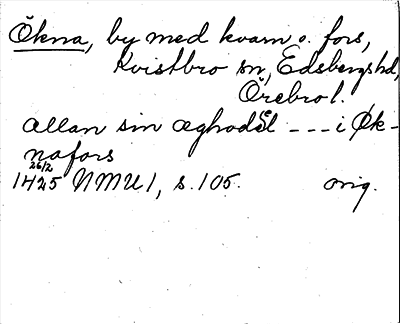 Ökna, by med kvarn o. fors,
Kvistbro sn, Edsbergshd,
Örebro l.
allan sin æghodel --- i Øk-
nafors
26/2
1425 NMU 1, s. 105. orig.